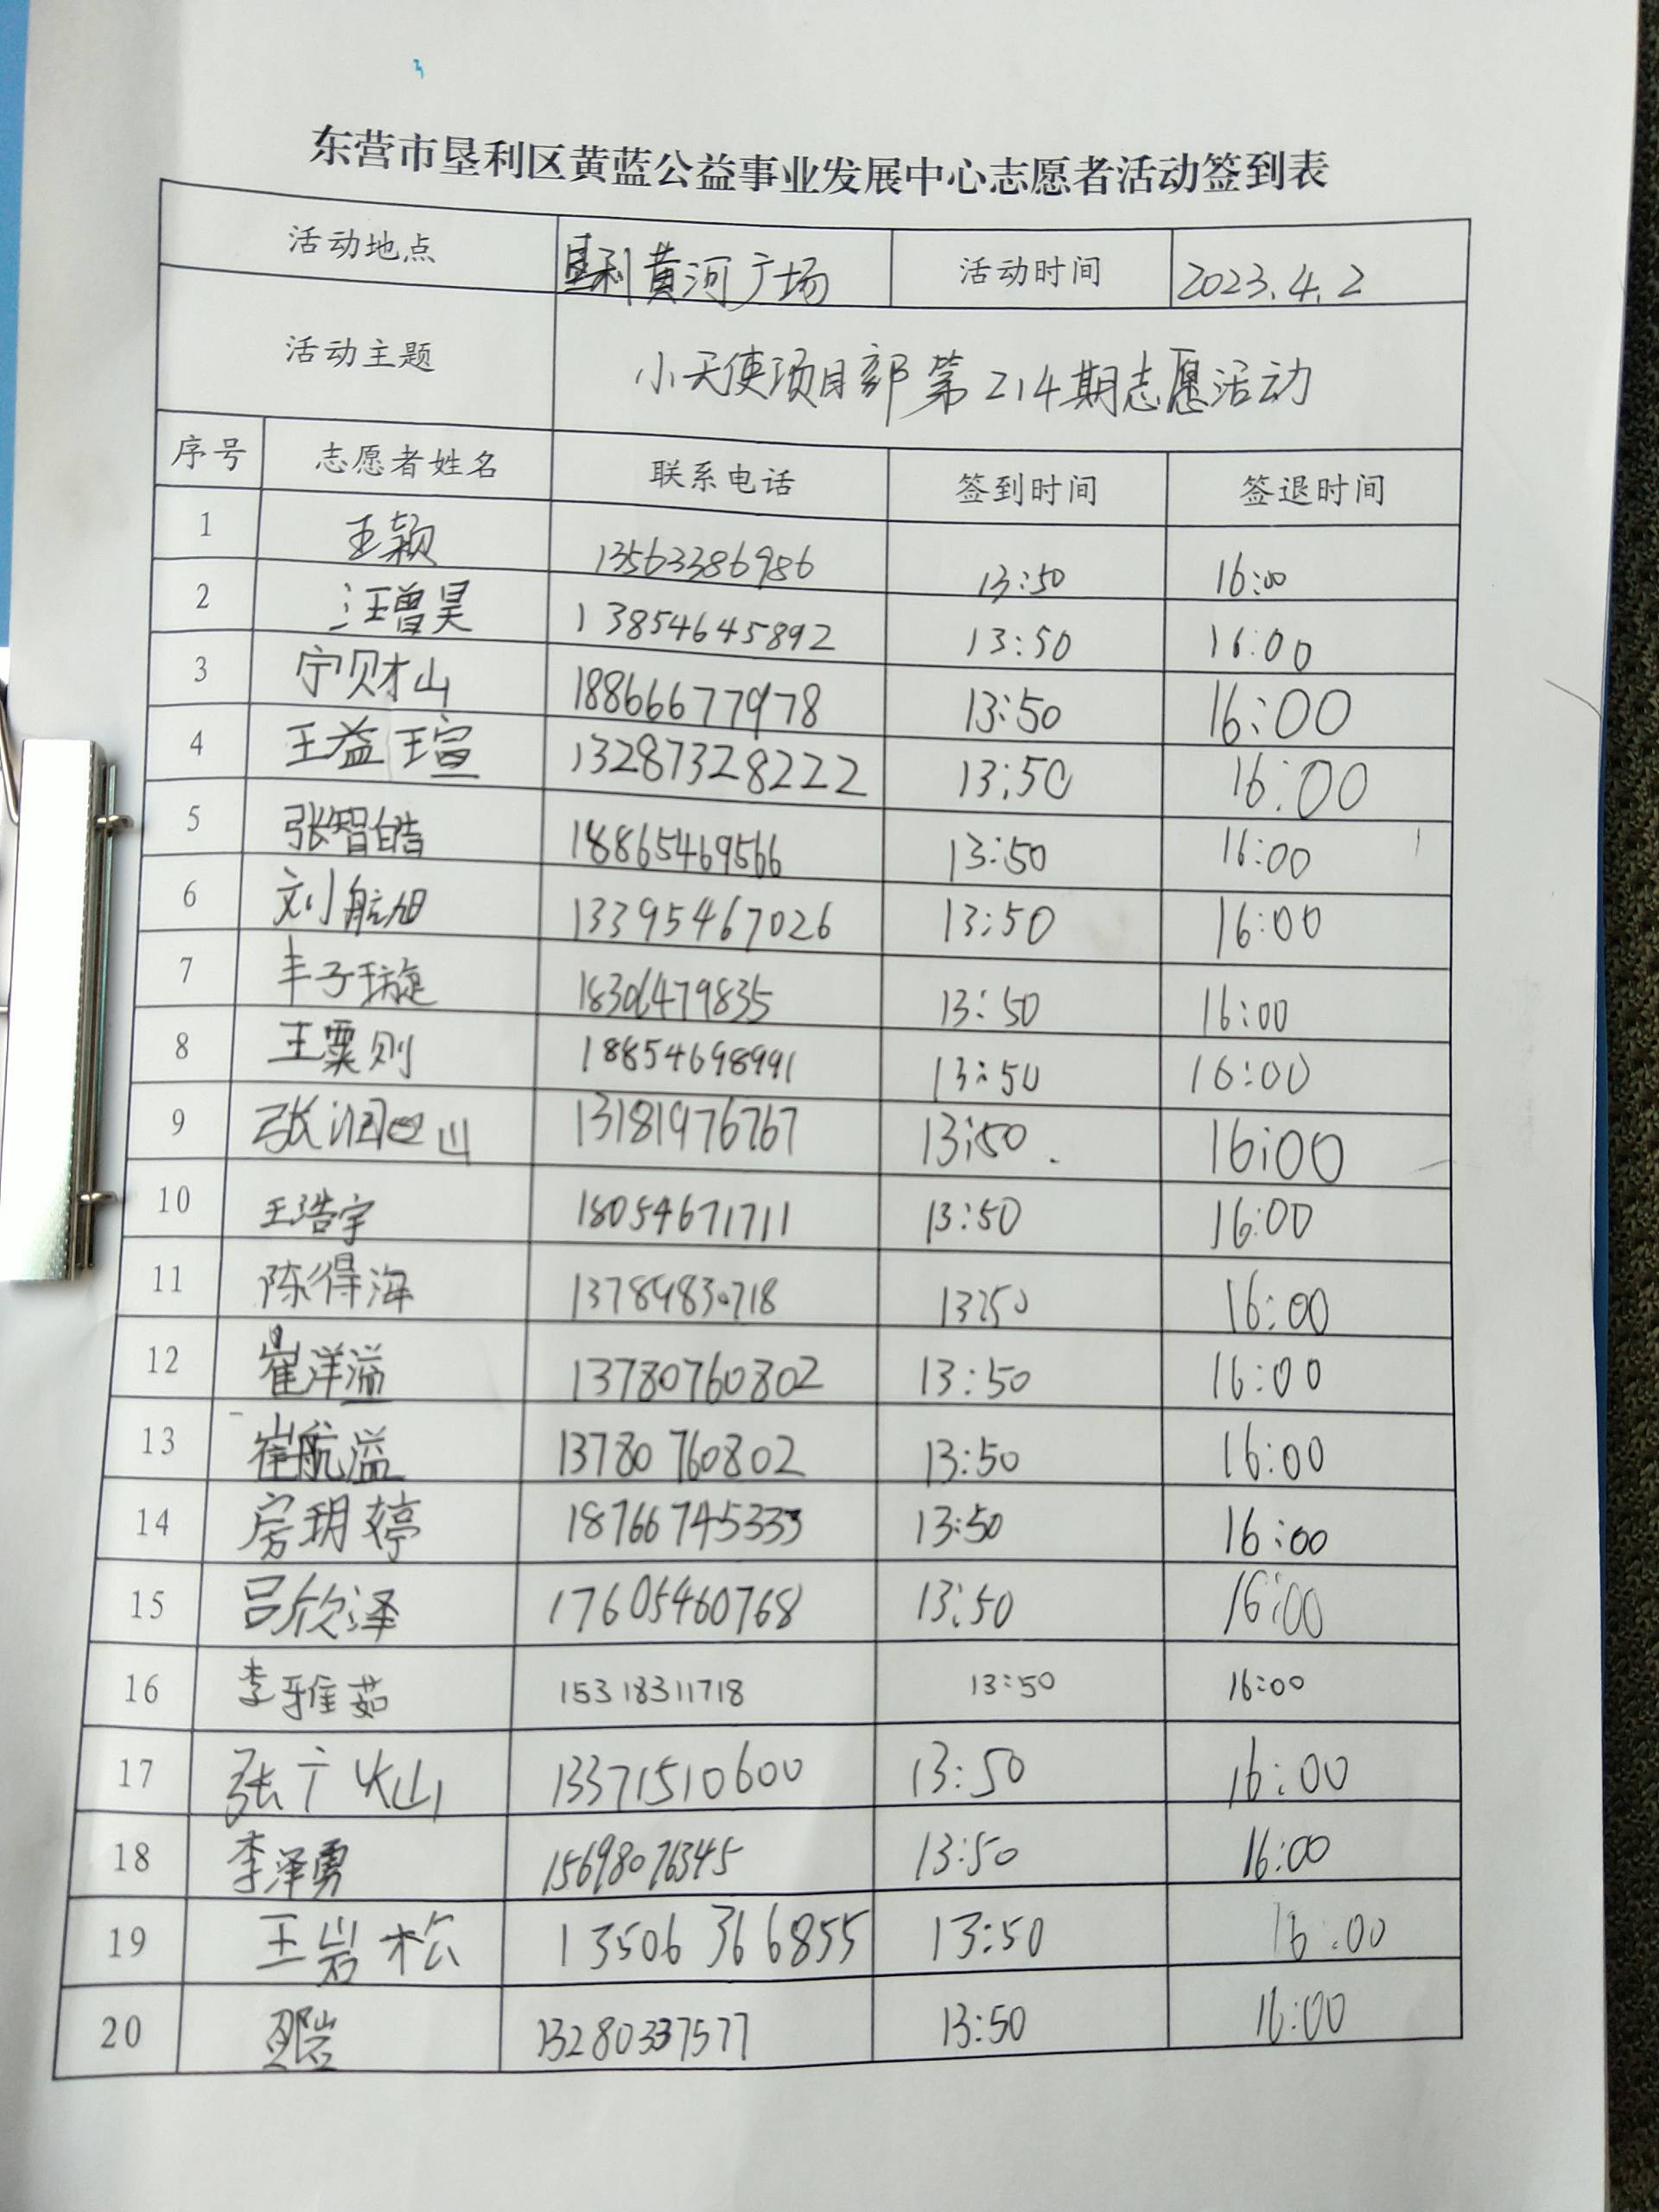 东营市垦利区黄蓝公益事业发展中心志愿者活动签到表
活动地点 垦利黄河广场 活动时间 2023.4.2
活动主题 小天使项目部第214期志愿活动
序号 志愿者姓名 联系电话 签到时间 签退时间
1 王颖 13563386986 13:50 16:00
2 汪增昊 13854645892 13:50 16:00
3 宁财山 18866677978 13:50 16:00
4 王益瑄 13287328222 13:50 16:00
5 张智皓 18865469566 13:50 16:00
6 刘航旭 13395467026 13:50 16:00
7 丰子璇 18306479835 13:50 16:00
8 王粟则 18854698991 13:50 16:00
9 张润 13181976767 13:50 16:00
10 王浩宇 18054671711 13:50 16:00
11 陈得海 13789830718 13:50 16:00
12 崔洋溢 13780760802 13:50 16:00
13 崔航溢 13780760802 13:50 16:00
14 房玥婷 18766745333 13:50 16:00
15 吕欣泽 17605460768 13:50 16:00
16 李雅茹 15318311718 13:50 16:00
17 张广灿 13371510600 13:50 16:00
18 李泽勇 15698076345 13:50 16:00
19 王岩松 13506366855 13:50 16:00
20 13280337577 13:50 16:00